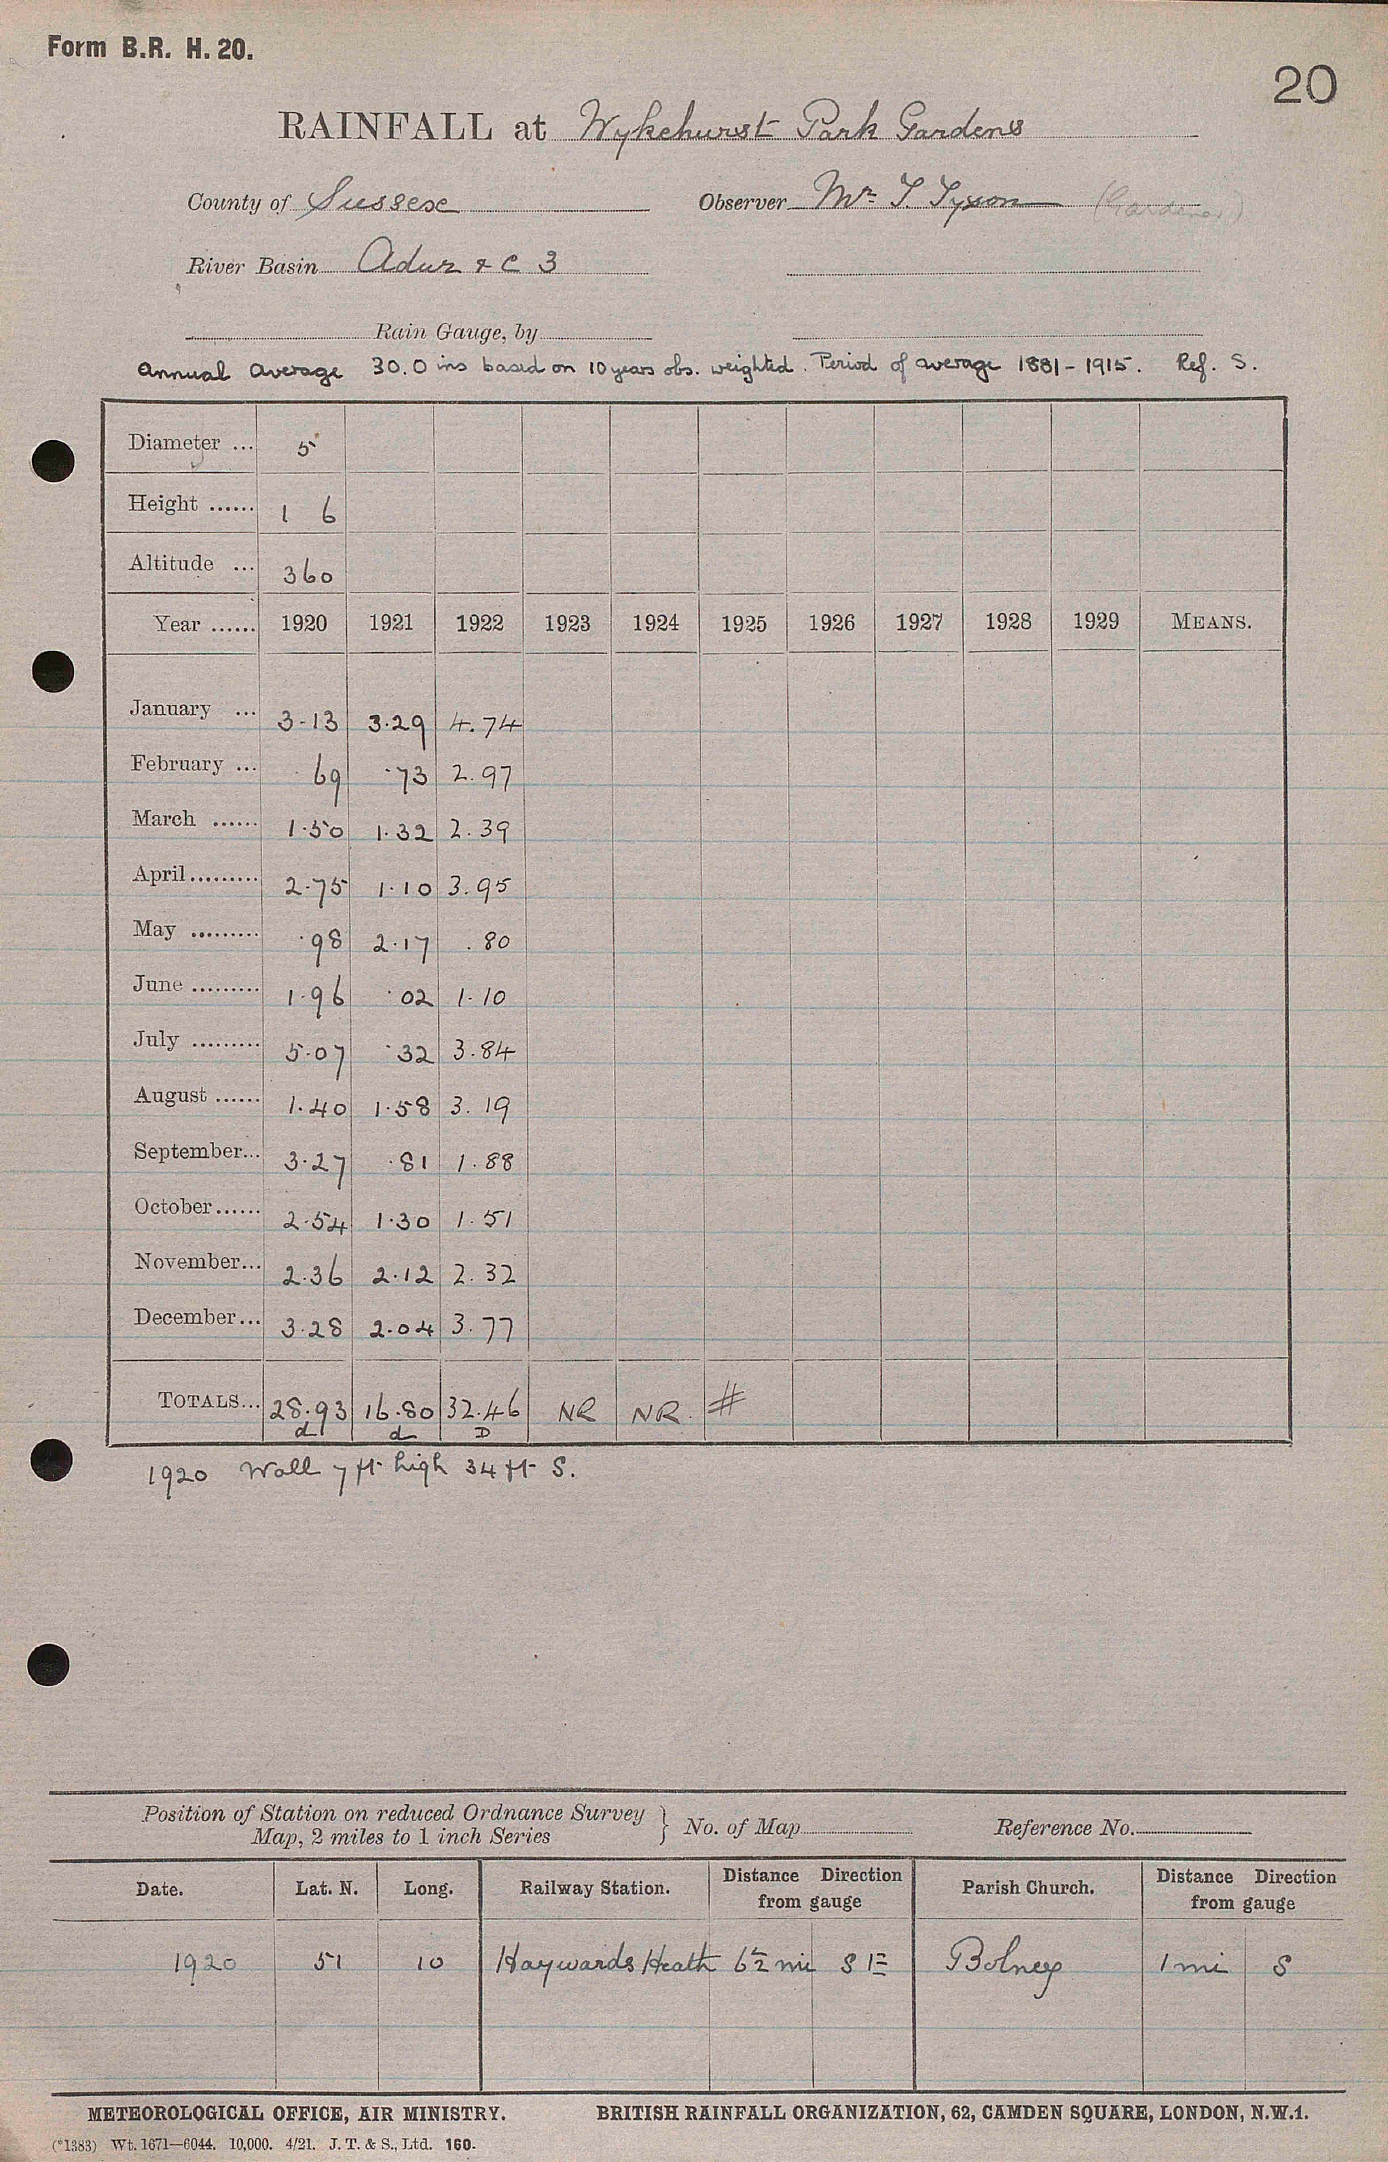 Form B.R. H. 20.
20
RAINFALL at Wykehurst Park Gardens
County of Sussex Observer Mr T. Tyson (Gardener)
River Basin Adur & C 3
Rain Gauge, by
Annual Average 30.0 ins based on 10 years obs. weighted. Period of average 1881-1915. Ref. S.
Diameter ... 5
Height ...... 1 6
Altitude ... 360
Year ...... 1920 1921 1922 1923 1924 1925 1926 1927 1928 1929 MEANS.
January ... 3.13 3.29 4.74
February ... .69 .73 2.97
March ...... 1.50 1.32 2.39
April......... 2.75 1.10 3.95
May ......... .98 2.17 .80
June ......... 1.96 .02 1.10
July ......... 5.07 .32 3.84
August ...... 1.40 1.58 3.19
September... 3.27 .81 1.88
October...... 2.54 1.30 1.51
November... 2.36 2.12 2.32
December... 3.28 2.04 3.77
TOTALS... 28.93 16.80 32.46 NR NR #
d d D
1920 Wall 7 ft high 34 ft S.
Position of Station on reduced Ordnance Survey
Map, 2 miles to 1 inch Series } No. of Map Reference No.
Date. Lat. N. Long. Railway Station. Distance Direction from gauge Parish Church. Distance Direction from gauge
1920 51 10 Haywards Heath 6½ mi S E Bolney 1 mi S
METEOROLOGICAL OFFICE, AIR MINISTRY. BRITISH RAINFALL ORGANIZATION, 62, CAMDEN SQUARE, LONDON, N.W.1.
(*1383) Wt. 1671—6044. 10,000. 4/21. J. T. & S., Ltd. 160.